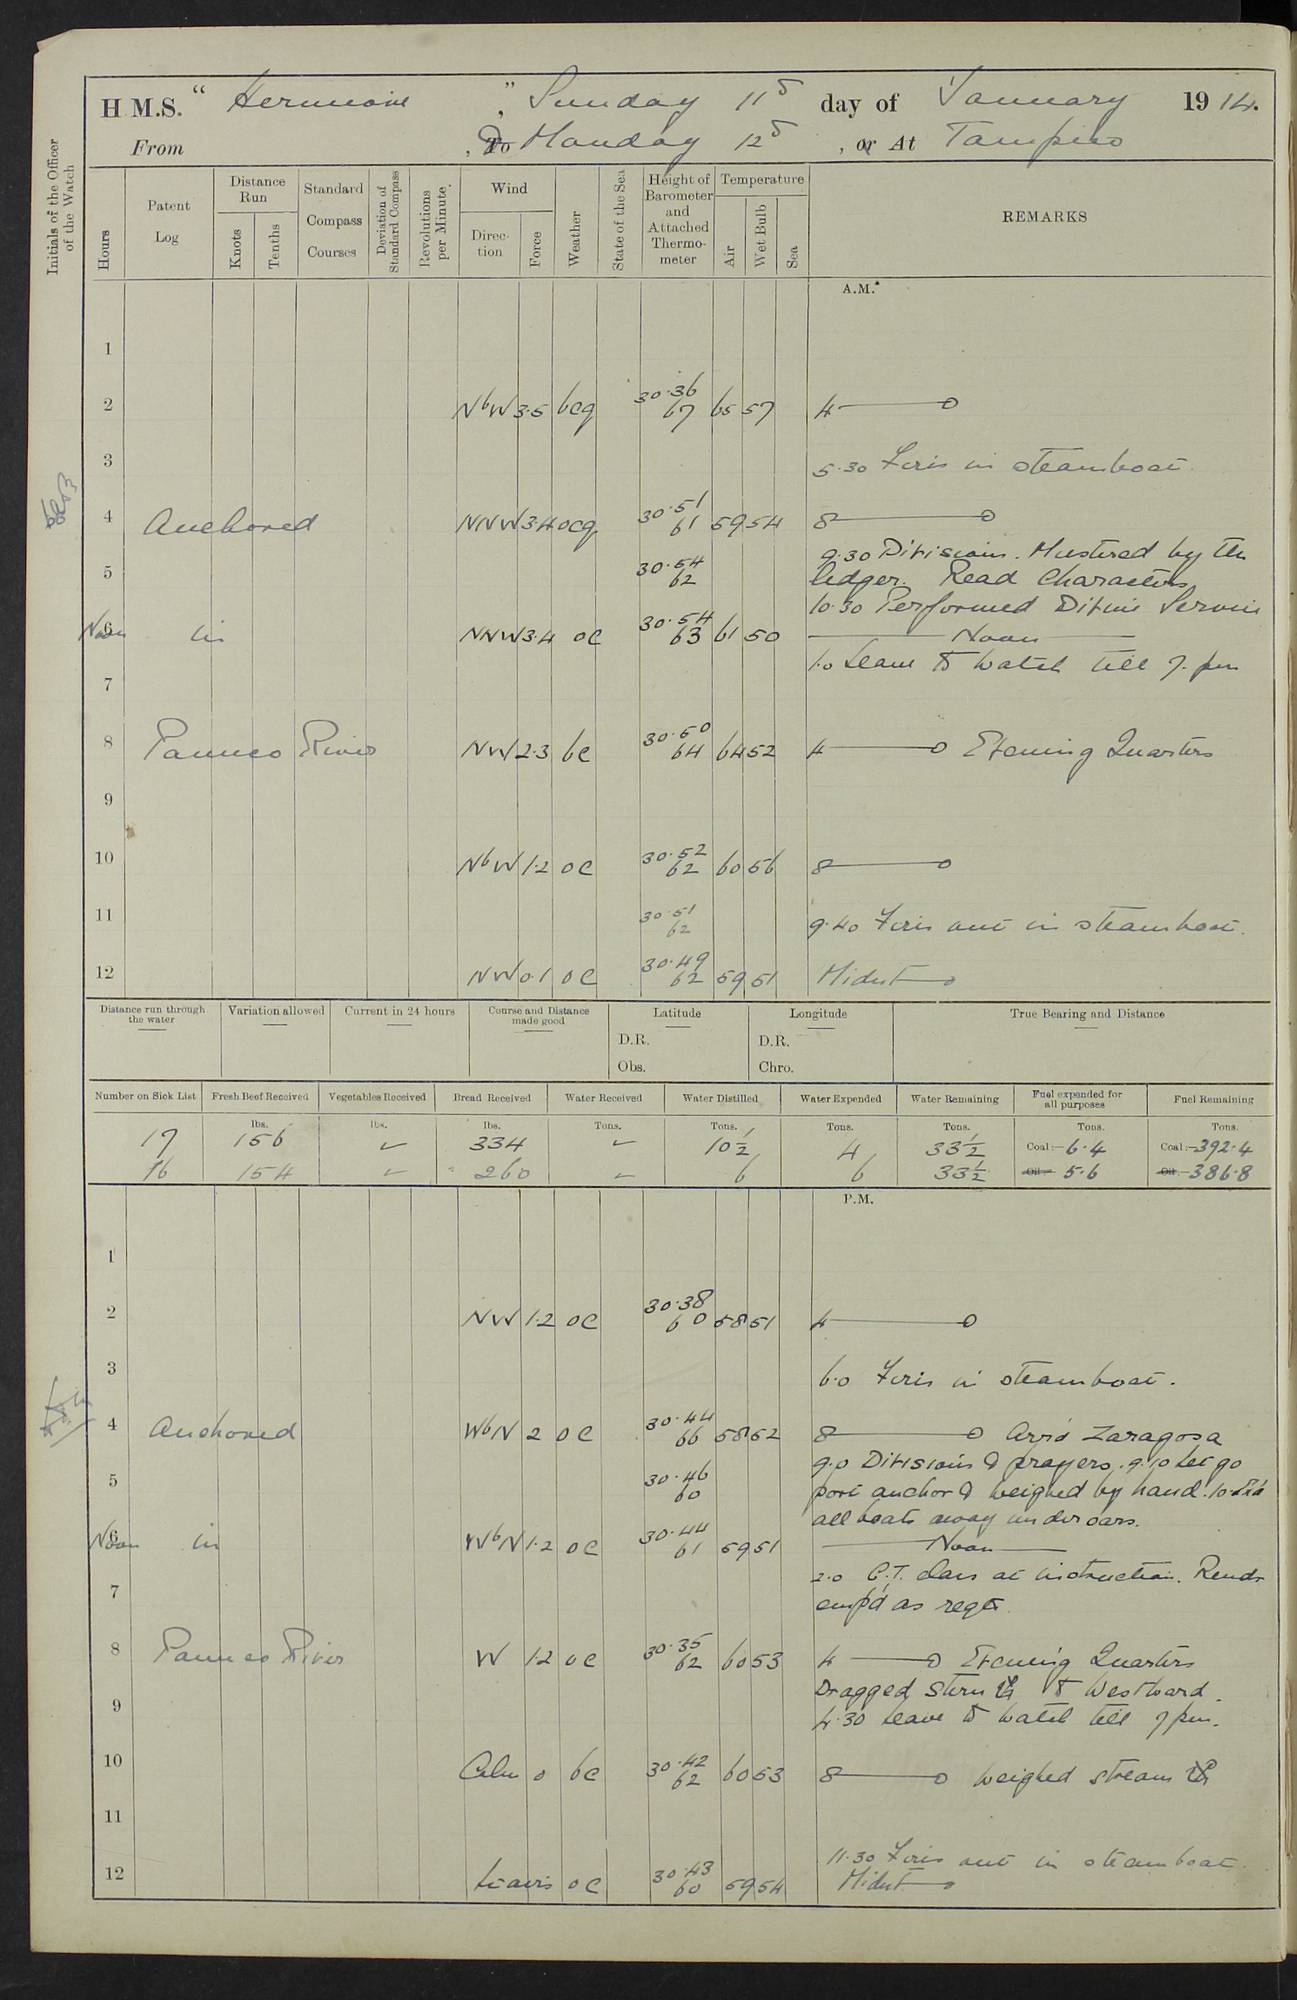 H.M.S. "Hermione", Sunday 11th day of January 1914.
From , To & Monday 12th , or At Tampico
Initials of the Officer of the Watch
Hours
Patent Log
Distance Run
Knots
Tenths
Standard Compass Courses
Deviation of Standard Compass
Revolutions per Minute
Wind
Direction
Force
Weather
State of the Sea
Height of Barometer and Attached Thermometer
Temperature
Air
Wet Bulb
Sea
REMARKS
A.M.
1
2 NbW 3.5 bcq 30.36 67 65 57 4
3 5.30 Fires in steamboat
4 Anchored NNW 3.4 ocq 30.51 61 59 54 8
9.30 Divisions. Mustered by the
5 30.54 62 ledger. Read Characters
10.30 Performed Divine Service
6 Noon in NNW 3.4 oc 30.54 63 61 50 Noon
1.0 Leave to watch till 7. pm
7
8 Panuco River NW 2.3 bc 30.50 64 64 52 4 Evening Quarters
9
10 NbW 1.2 oc 30.52 62 60 56 8
11 30.51 62 9.40 Fires out in steamboat.
12 NW 0.1 oc 30.49 62 59 51 Midnt
Distance run through the water
Variation allowed
Current in 24 hours
Course and Distance made good
Latitude
D.R.
Obs.
Longitude
D.R.
Chro.
True Bearing and Distance
Number on Sick List
Fresh Beef Received
Vegetables Received
Bread Received
Water Received
Water Distilled
Water Expended
Water Remaining
Fuel expended for all purposes
Fuel Remaining
lbs. lbs. lbs. Tons. Tons. Tons. Tons. Tons. Tons.
17 156 ✓ 334 ✓ 10½ 4 33½ Coal:-6.4 Coal:-392.4
16 154 ✓ 260 ✓ 6 6 33½ Oil:- 5.6 Oil:-386.8
P.M.
1
2 NW 1.2 oc 30.38 60 58 51 4
3 6.0 Fires in steamboat.
4 Anchored WbN 2 oc 30.44 66 58 52 8 Arrd Zaragosa
9.0 Divisions & prayers. 9.10 Let go
5 30.46 60 port anchor & weighed by hand. 10.
all boats away under oars.
6 Noon in WbN 1.2 oc 30.44 61 59 51 Noon
2.0 C.T. class at instruction. Remdr
7 emp'd as reqd.
8 Panuco River W 1.2 oc 30.35 62 60 53 4 Evening Quarters
Dragged stern ⚓ to Westward.
9 4.30 Leave to watch till 7 pm.
10 Calm 0 bc 30.42 62 60 53 8 Weighed stream ⚓
11
11.30 Fires out in steamboat
12 Lt airs oc 30.43 60 59 54 Midnt